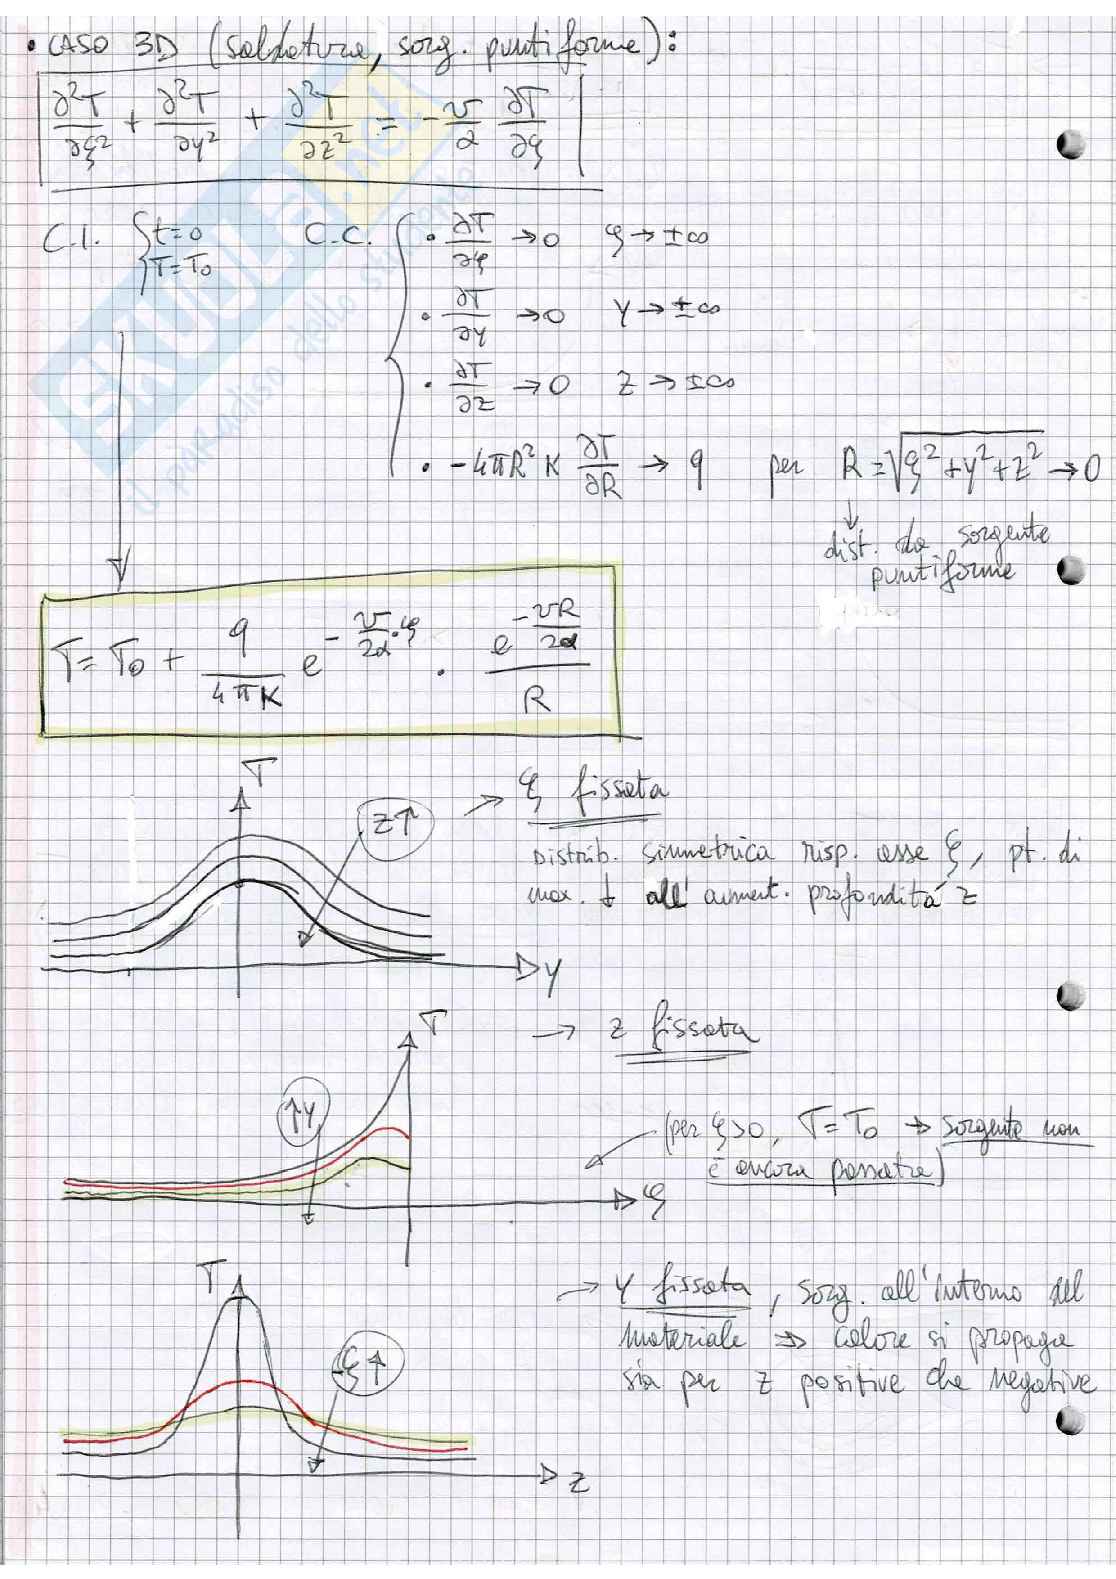 • CASO 3D (saldatura, sorg. puntiforme):
∂²T/∂ξ² + ∂²T/∂y² + ∂²T/∂z² = - v/α ∂T/∂ξ
C.I. { t=0 T=T₀
C.C. { • ∂T/∂ξ → 0 ξ → ±∞
• ∂T/∂y → 0 y → ±∞
• ∂T/∂z → 0 z → ±∞
• -4πR² K ∂T/∂R → q per R = √(ξ²+y²+z²) → 0
↓
dist. da sorgente
puntiforme
T = T₀ + q/(4πK) e^(-v/2α·ξ) · e^(-vR/2α)/R
T
z↑
→ ξ fissata
Distrib. simmetrica risp. asse ξ, pt. di
max. ↓ all' aument. profondità z
y
T
→ z fissata
↑y
(per ξ>0, T=T₀ → sorgente non
è ancora passata)
ξ
T
→ y fissata, sorg. all'interno del
materiale ⇒ calore si propaga
sia per z positive che negative
-ξ↑
z
SKUOLA.net
il paradiso dello studente